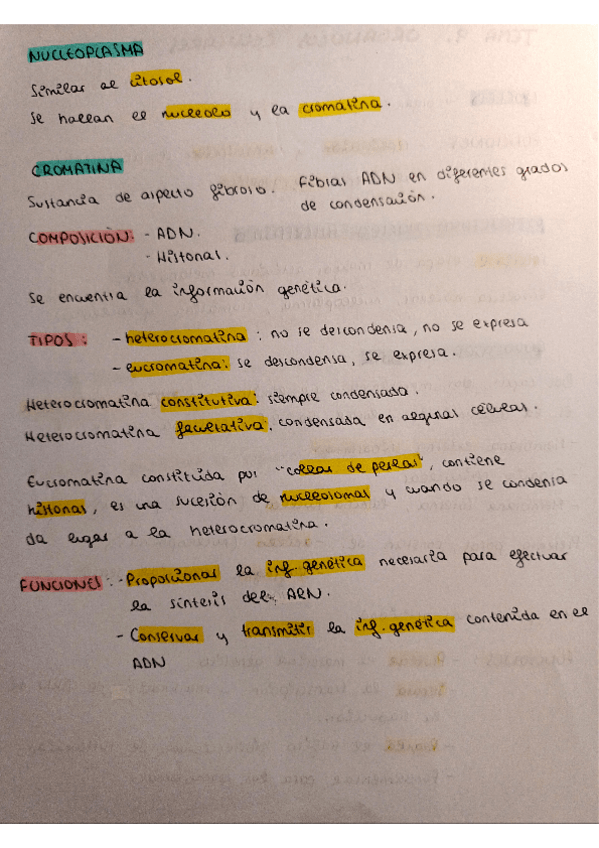 NUCLEOPLASMA
Similar al citosol.
Se hallan el nucleolo y la cromatina.
CROMATINA
Sustancia de aspecto fibroso. Fibras ADN en diferentes grados
de condensación.
COMPOSICIÓN: - ADN.
- Histonas.
Se encuentra la información genética.
TIPOS: - heterocromatina: no se descondensa, no se expresa
- eucromatina: se descondensa, se expresa.
Heterocromatina constitutiva: siempre condensada.
Heterocromatina facultativa: condensada en algunas células.
Eucromatina constituida por "collar de perlas", contiene
histonas, es una sucesión de nucleosomas y cuando se condensa
da lugar a la heterocromatina.
FUNCIONES: - Proporcionar la inf. genética necesaria para efectuar
la síntesis del ARN.
- Conservar y transmitir la inf. genética contenida en el
ADN